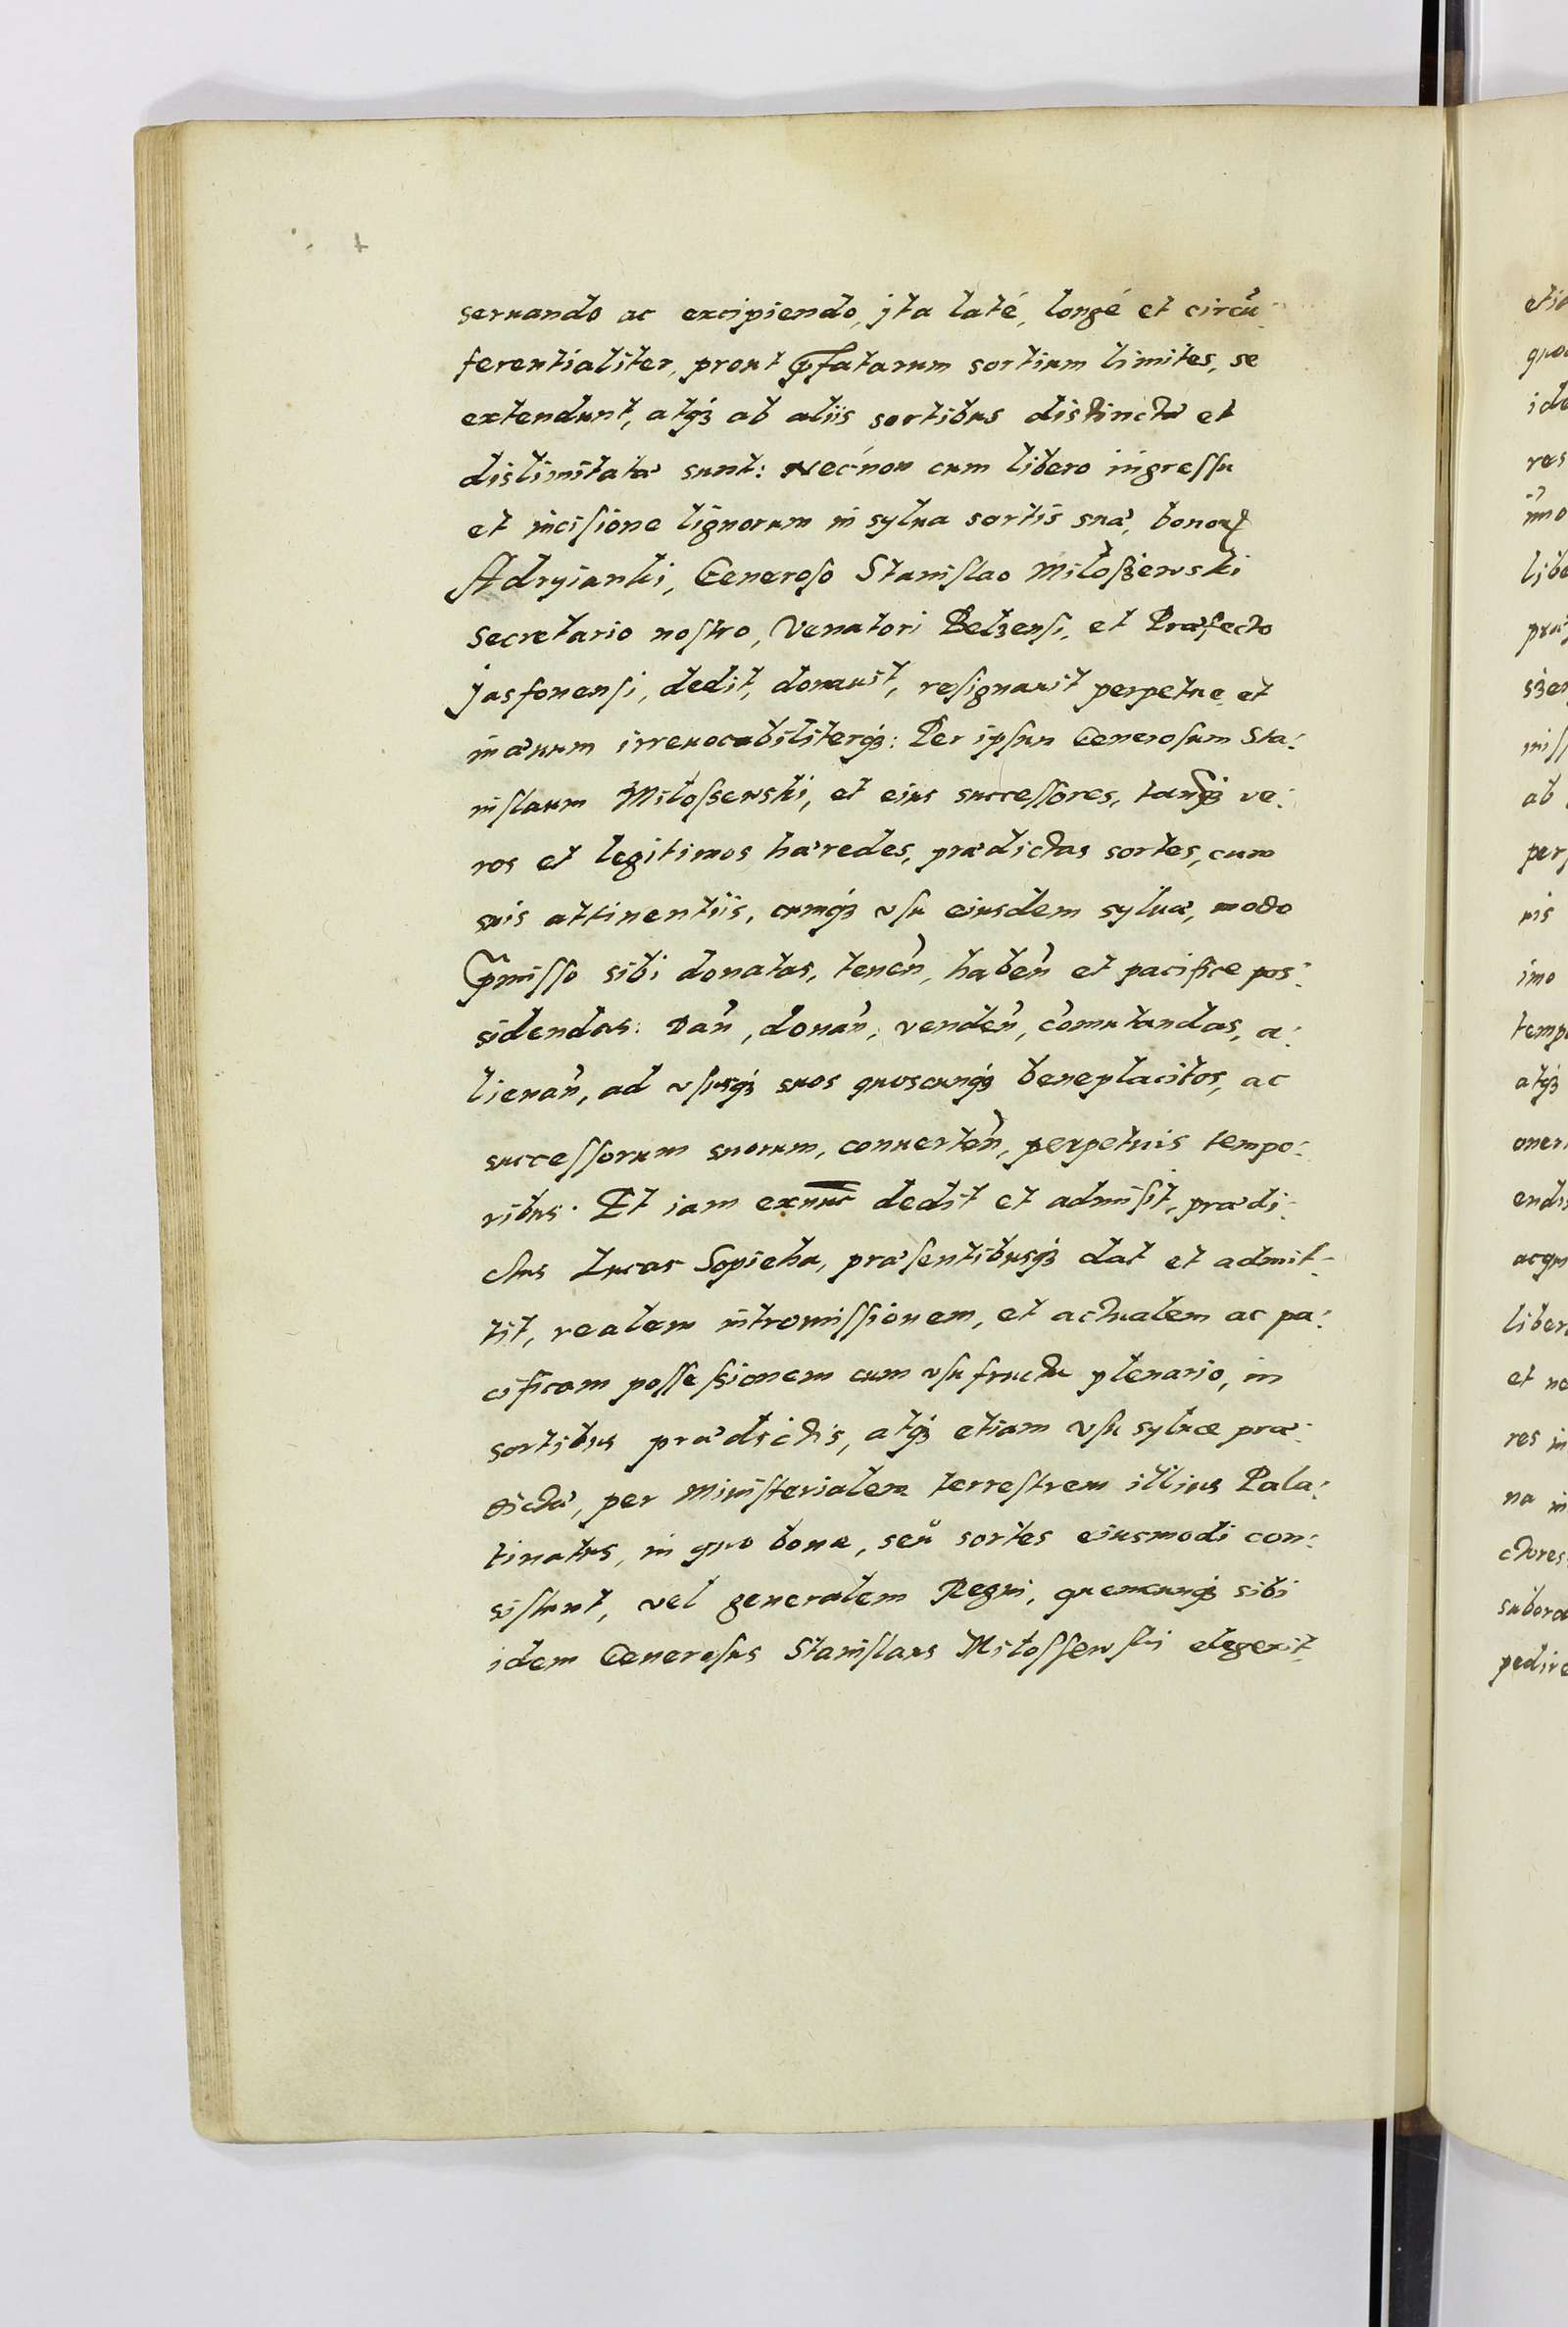 seruando ac excipiendo, jta laté, longé et circũ:
ferentialiter, prout p̃fatarum sortium limites, se
extendunt, atqʒ ab aliis sortibus distinctæ et
dislimitatæ sunt: Nec non cum libero ingreſſu
et inciſione lignorum in sylua sortis suæ, bonoꝝ
Adryianki, Generoſo Staniſlao Miłoſʒewski
Secretario noſtro, Venatori Belʒenſi, et Præfecto
Jasſonenſi, dedit, donauit, reſignauit perpetue et
in æuum irreuocabiliterqʒ: Per ipſum Generoſum Sta:
niſlaum Miłoſſewski, et eius succeſſores, tanqʒ ve:
ros et legitimos hæredes, prædictas sortes, cum
suis attinentiis, cumqʒ vſu eiusdem syluæ, modo
p̃miſſo sibi donatas, teneñ, habeñ et pacifice pos:
sidendas: Dañ, donañ, vendeñ, com̃utandas, a:
lienañ, ad vſusqʒ suos quoscunqʒ beneplacitos, ac
succeſſorum suorum, conuerteñ, perpetuis tempo:
ribus. Et iam exnunc dedit et admiſit, prædi:
ctus Lucas Sopieha, præſentibusqʒ dat et admit:
tit, realem intromiſſionem, et actualem ac pa:
cificam poſſeſsionem cum vſufructu plenario, in
sortibus prædictis, atqʒ etiam vſu syluæ præ:
dictæ, per Miniſterialem terreſtrem illius Pala:
tinatus, in quo bona, seu sortes eiusmodi con:
siſtunt, vel generalem Regni, quemcunqʒ sibi
idem Generoſus Staniſlaus Miłoſſewſki elegerit,
etia
quo
ide
res
libe
ab
per
uis
imo
temp
atqʒ
oner
endis
acqu
liber
et no
res in
na in
ctores
subord
pedire